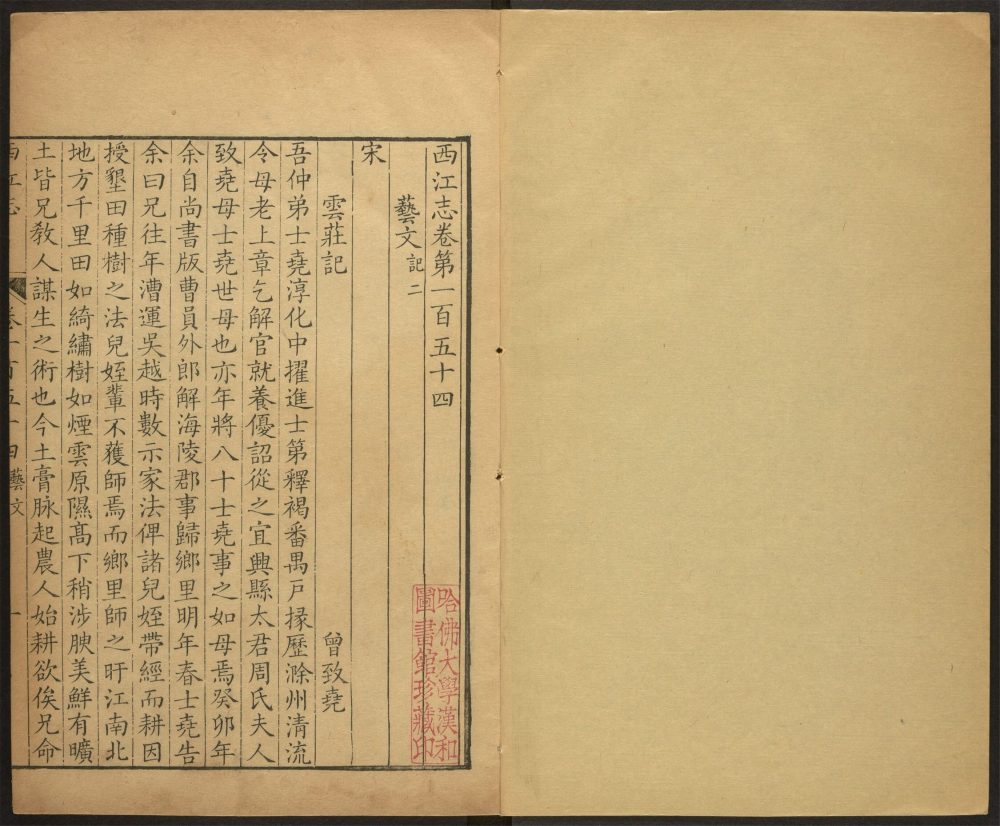 西江志卷第一百五十四
藝文記二
宋
雲莊記 曾致堯
吾仲弟士堯淳化中擢進士第釋褐番禺戶掾歷滁州清流
令母老上章乞解官就養優詔從之宜興縣太君周氏夫人
致堯母士堯世母也亦年將八十士堯事之如母焉癸卯年
余自尚書版曹員外郎解海陵郡事歸鄉里明年春士堯告
余曰兄往年漕運吳越時數示家法俾諸兒姪帶經而耕因
授墾田種樹之法兒姪輩不蒦師焉而鄉里師之旴江南北
地方千里田如綺繡樹如煙雲原隰髙下稍涉腴美鮮有曠
土皆兄敎人謀生之術也今土膏脉起農人始耕欲俟兄命
西江志 卷一百五十四藝文 一
哈佛大學漢和
圖書館珍藏印